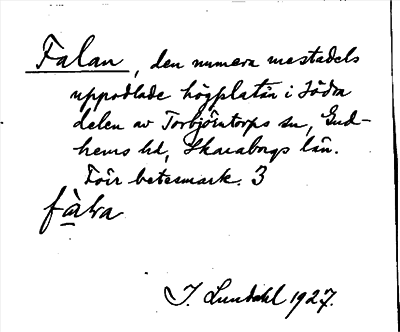 Falan, den numera mestadels
uppodlade högplatån i södra
delen av Torbjörntorps sn, Gud-
hems hd, Skaraborgs län.
Förr betesmark. 3
fàlra
I. Lundahl 1927.